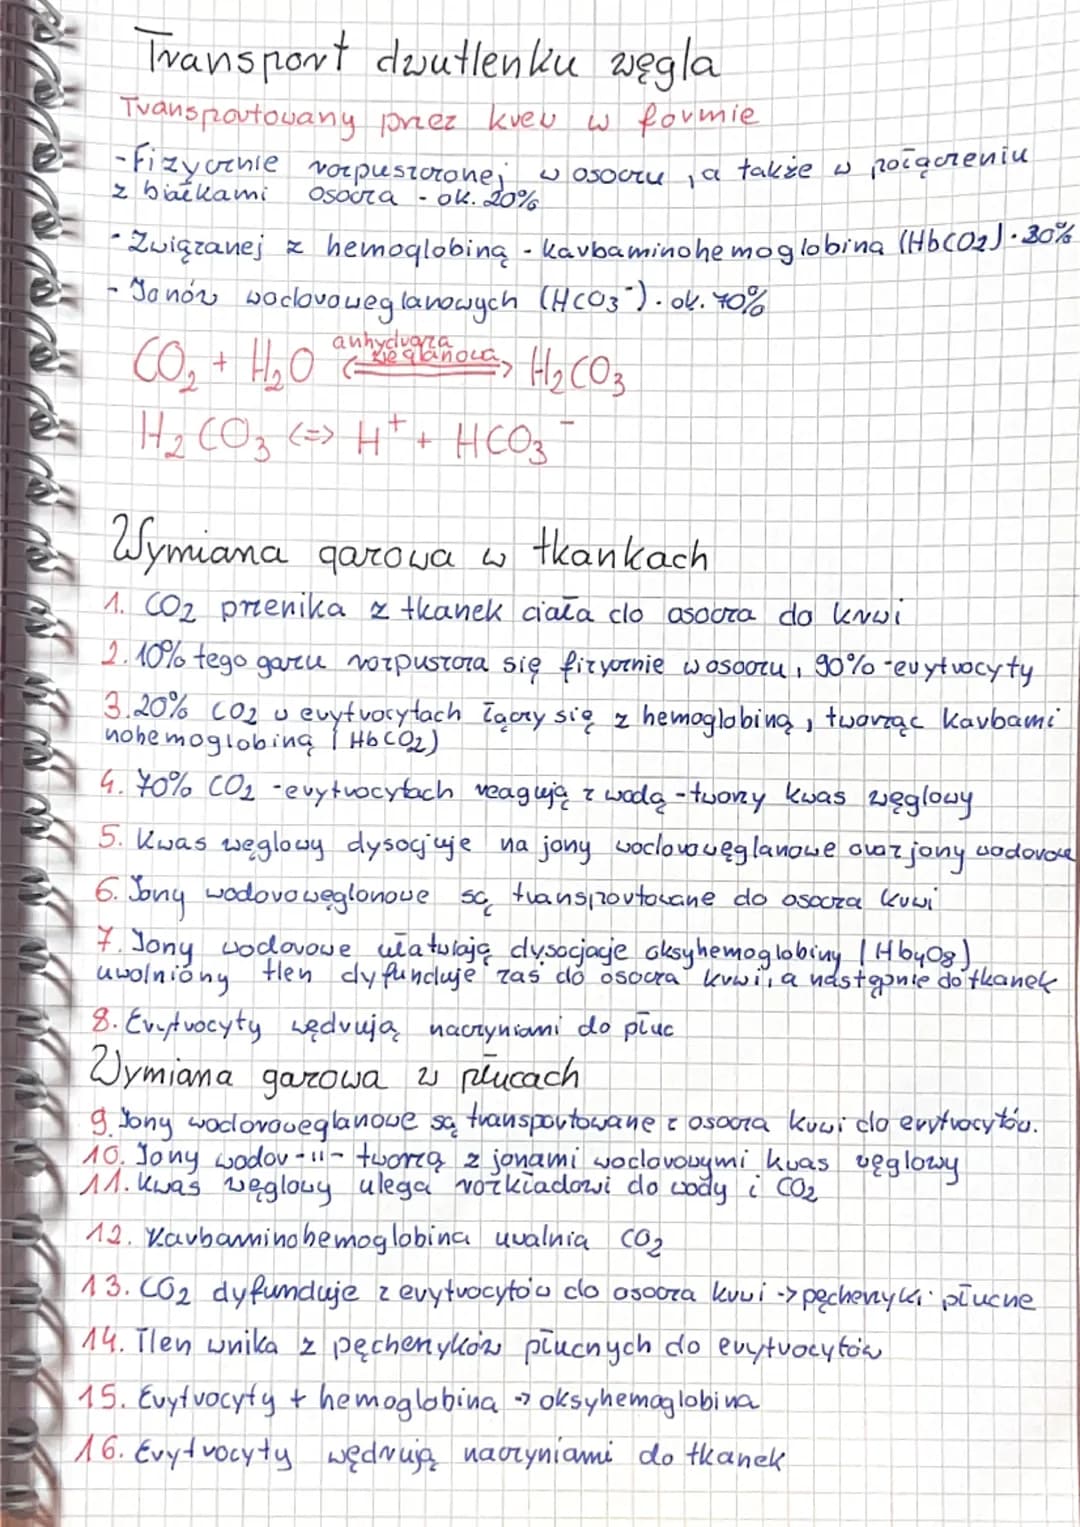 Transport dwutlenku węgla
Transportowany przez krew w formie
- Fizycznie rozpuszczonej w osoczu, a także w połączeniu
z białkami osocza - ok. 20%
- Związanej z hemoglobiną - karbaminohemoglobina (HbCO2) · 30%
- Jonów wodorowęglanowych (HCO3⁻) · ok. 70%
anhydraza
węglanowa
CO₂ + H₂O <=> H₂CO₃
H₂CO₃ <=> H⁺ + HCO₃⁻
Wymiana gazowa w tkankach
1. CO2 przenika z tkanek ciała do osocza do krwi
2. 10% tego gazu rozpuszcza się fizycznie w osoczu, 90% - erytrocyty
3. 20% CO2 w erytrocytach łączy się z hemoglobiną, tworząc karbami
nohemoglobiną (HbCO2)
4. 70% CO2 - erytrocytach reagują z wodą - tworzy kwas węglowy
5. Kwas węglowy dysocjuje na jony wodorowęglanowe oraz jony wodorowe
6. Jony wodorowęglonowe są transportowane do osocza krwi
7. Jony wodorowe ułatwiają dysocjacje oksyhemoglobiny (Hb4O8)
uwolniony tlen dyfunduje zaś do osocza krwi, a następnie do tkanek
8. Erytrocyty wędrują naczyniami do płuc
Wymiana gazowa w płucach
9. Jony wodorowęglanowe są transportowane z osocza krwi do erytrocytów.
10. Jony wodor -11- tworzą z jonami wodorowymi kwas węglowy
11. Kwas węglowy ulega rozkładowi do wody i CO2
12. Karbaminohemoglobina uwalnia CO2
13. CO2 dyfunduje z erytrocytów do osocza krwi -> pęcherzyki płucne
14. Tlen wnika z pęcherzyków płucnych do erytrocytów
15. Erytrocyty + hemoglobina -> oksyhemoglobina
16. Erytrocyty wędrują naczyniami do tkanek